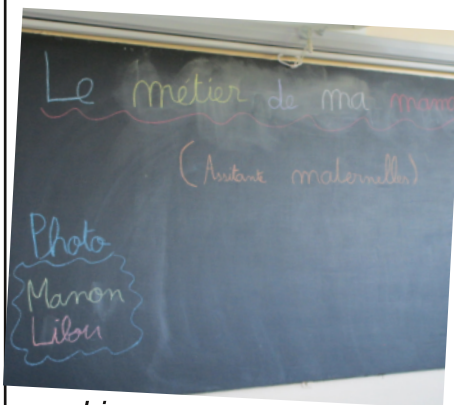 Le métier de ma mam
(Assitante maternelles)
Photo
Manon
Lilou